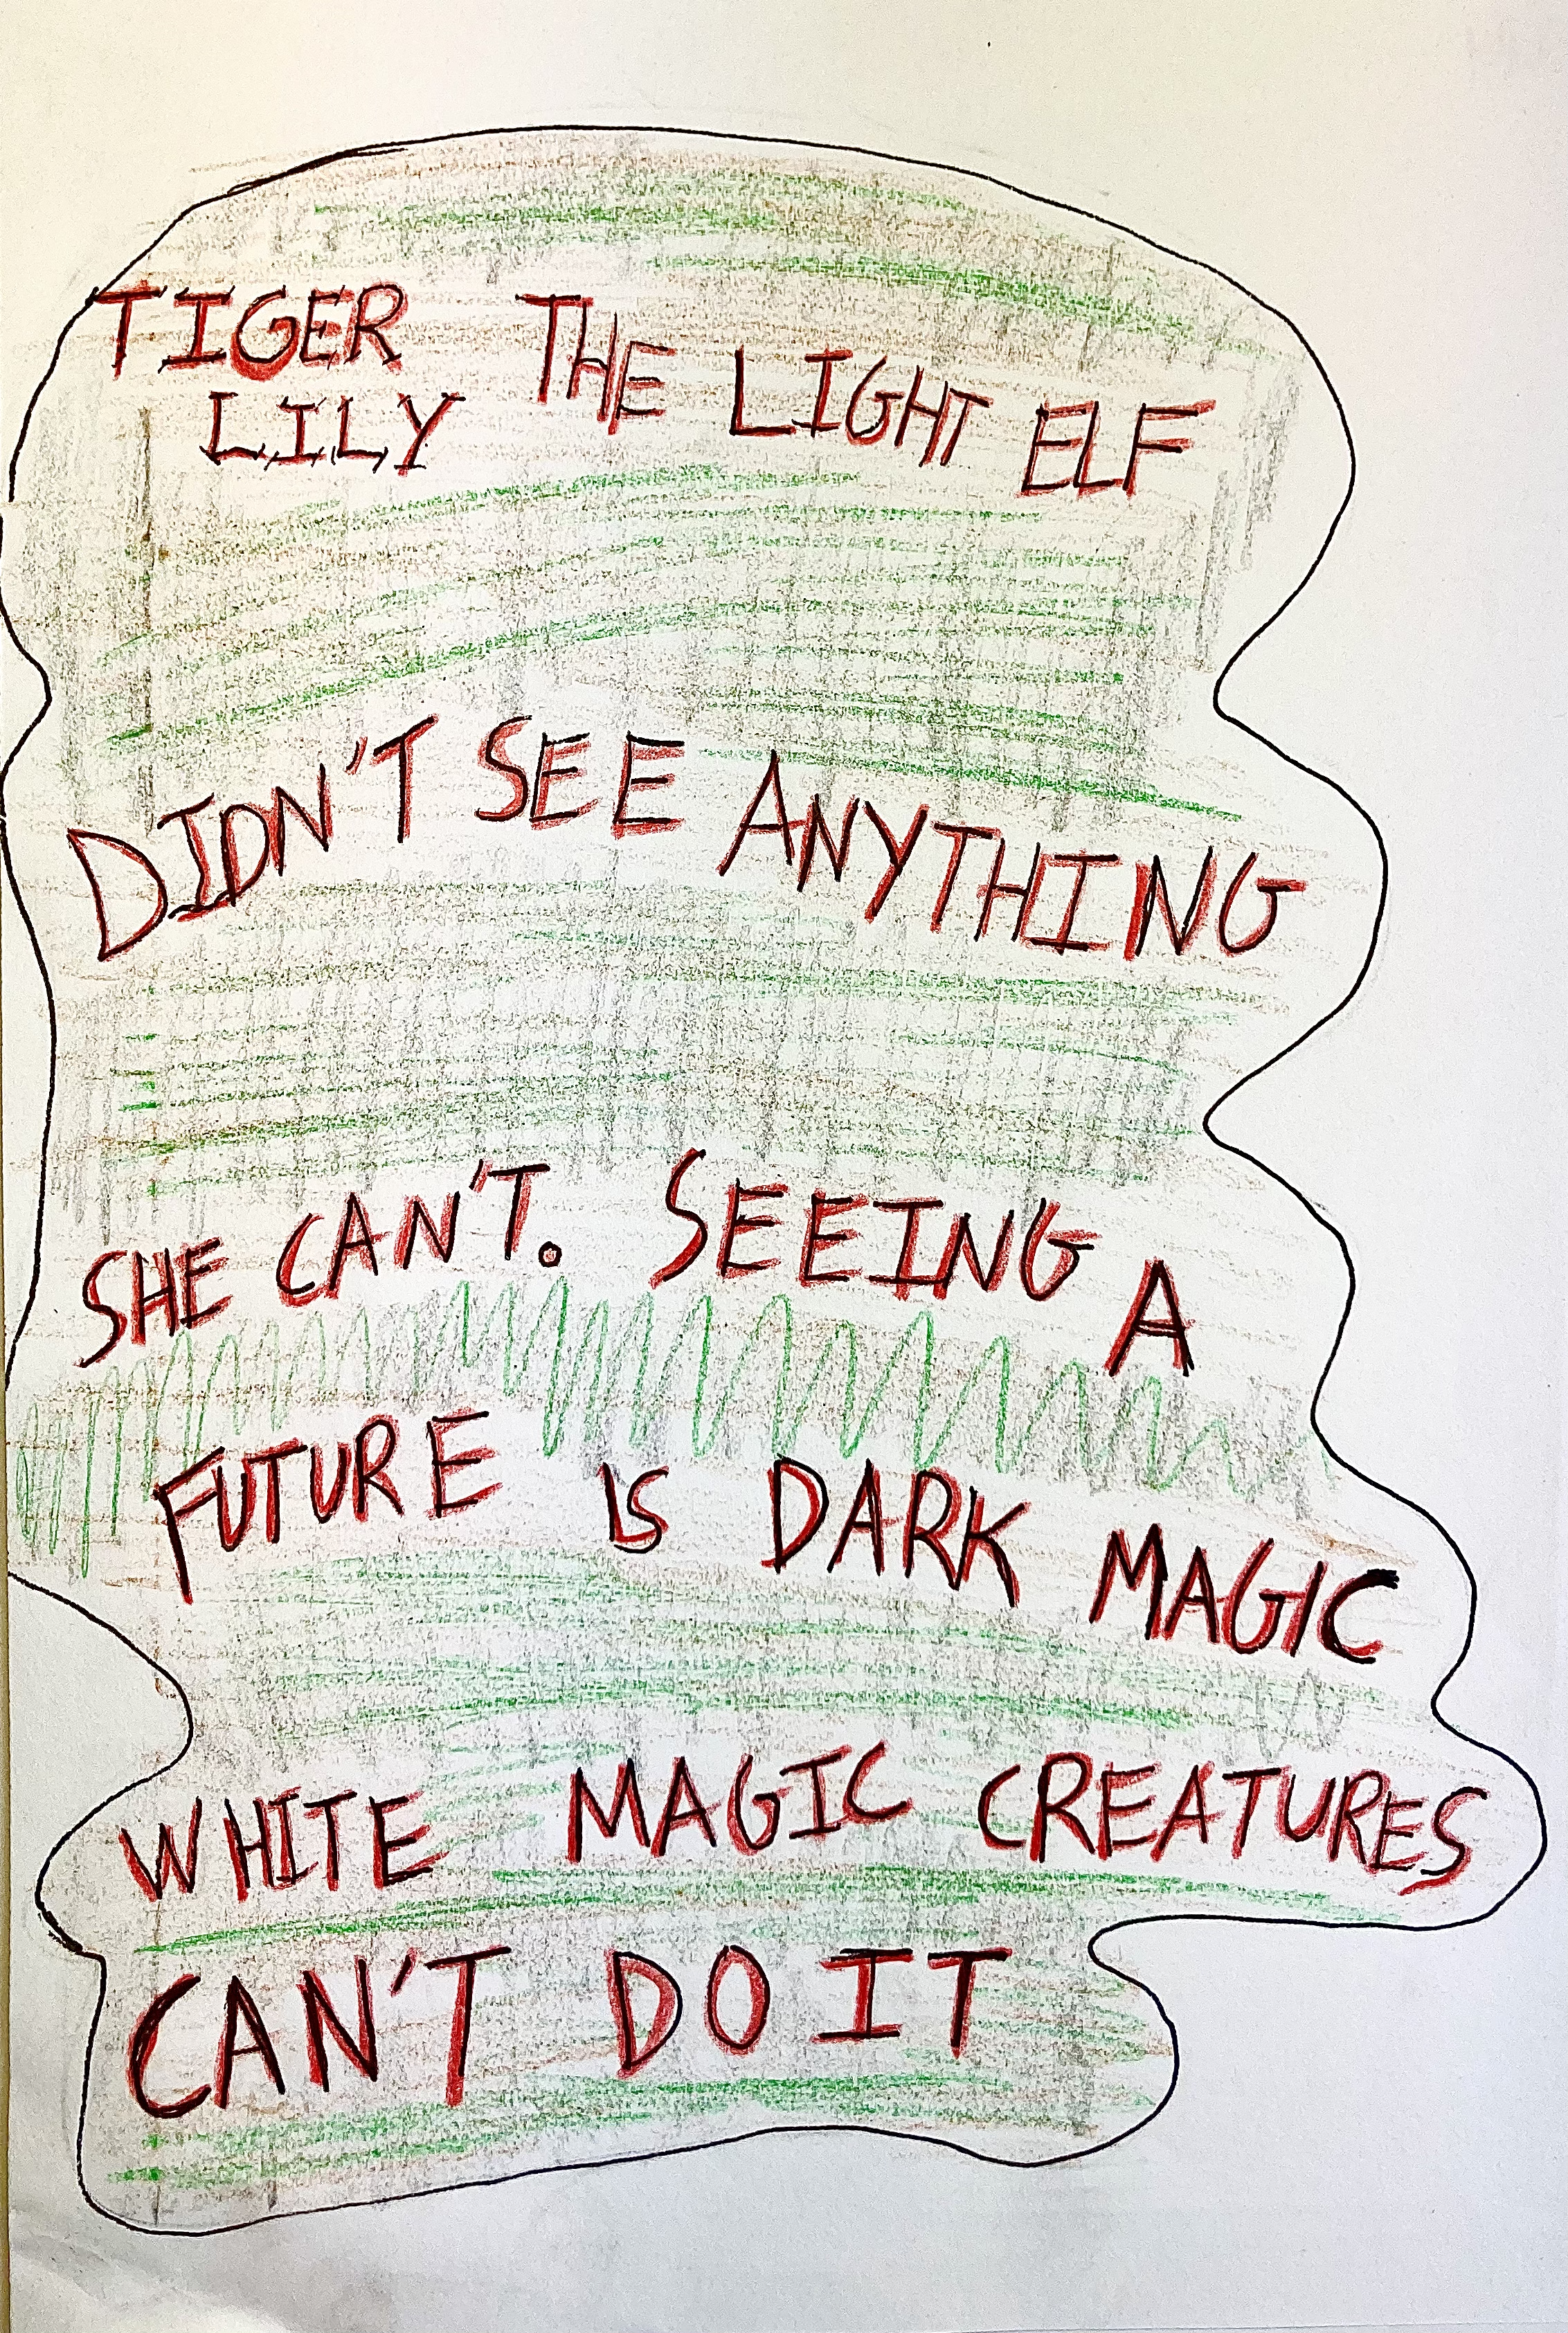 TIGER THE LIGHT ELF
LILY
DIDN'T SEE ANYTHING
SHE CAN'T. SEEING A
FUTURE IS DARK MAGIC
WHITE MAGIC CREATURES
CAN'T DO IT